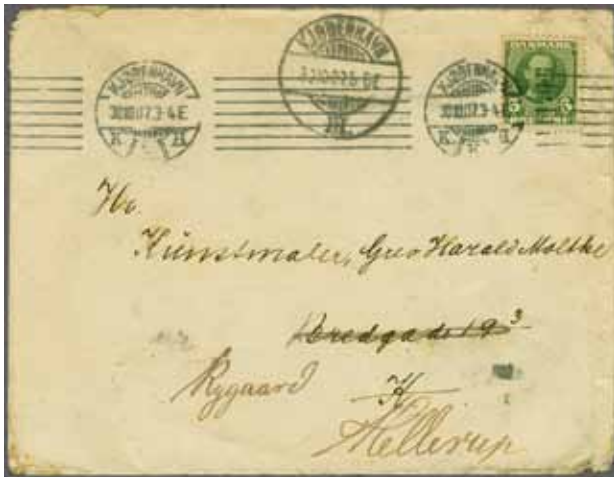 KJØBENHAVN
30.10.07.3-4E
K
KJØBENHAVN
KJØBENHAVN
30.10.07.3-4E
K
DANMARK
5 5
Hr.
Kunstmaler, Grev Harald Moltke
Bredgade 19³
K
Rygaard
Hellerup